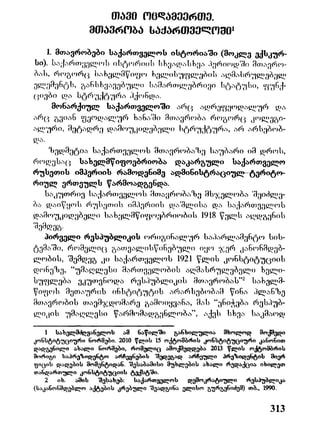 თავი ოცდამეერთე.
მთავრობა საქართველოში¹
I. მთავრობები საქართველოს ისტორიაში (მოკლე ექსკურ-
სი). საქართველოს ისტორიის სხვადასხვა პერიოდში მთავრო-
ბას, როგორც სახელმწიფო ხელისუფლების აღმასრულებელ
ელემენტს, განსხვავებული სამართლებრივი სტატუსი, ფუნქ-
ციები და სტრუქტურა ჰქონდა.
მონარქიულ საქართველოში არც ადრეფეოდალურ და
არც გვიან ფეოდალურ ხანაში მთავრობა როგორც კოლეგი-
ალური, მეტადრე დამოუკიდებელი სტრუქტურა, არ არსებობ-
და.
ზედმეტია საქართველოს მთავრობაზე საუბარი იმ დროს,
როდესაც სახელმწიფოებრიობა დაკარგული საქართველო
რუსეთის იმპერიის რამოდენიმე ადმინისტრაციულ-ტერიტო-
რიულ ერთეულს წარმოადგენდა.
საკუთრივ საქართველოს მთავრობაზე მსჯელობა შეიძლე-
ბა დაიწყოს რუსეთის იმპერიის დაშლისა და საქართველოს
დამოუკიდებელი სახელმწიფოებრიობის 1918 წელს აღდგენის
შემდეგ.
პირველი რესპუბლიკის ორიგინალურ საპარლამენტო სის-
ტემაში, რომელიც გათვალისწინებული იყო ჯერ კანონმდებ-
ლობის, შემდეგ კი საქართველოს 1921 წლის კონსტიტუციის
დონეზე, “უმაღლესი მართველობის აღმასრულებელი ხელი-
სუფლება ეკუთვნოდა რესპუბლიკის მთავრობას”² სახელმ-
წიფოს მეთაურის ინსტიტუტის არარსებობამ წინა პლანზე
მთავრობის თავმჯდომარე გამოიყვანა, მას “ენიჭება რესპუბ-
ლიკის უმაღლესი წარმომადგენლობა”, აქვს სხვა საკმაოდ
1 სახელმძღვანელოს ამ ნაწილში განხილულია მხოლოდ მოქმედი
კონსტიტუციური ნორმები. 2010 წლის 15 ოქტომბრის კონსტიტუციური კანონით
დადგენილი ახალი ნორმები, რომელიც ამოქმედდება 2013 წლის ოქტომბრის
მორიგი საპრეზიდენტო არჩევნების შედეგად არჩეული პრეზიდენტის მიერ
ფიცის დადების მომენტიდან. შესაბამისი მუხლების ახალი რედაქცია იხილეთ
თანდართული კონსტიტუციის ტექსტში.
2 იხ. ამის შესახებ: საქართველოს დემოკრატიული რესპუბლიკა
(საკანონმდებლო აქტების კრებული შეადგინა ელისო გურგენიძემ) თბ., 1990.
313